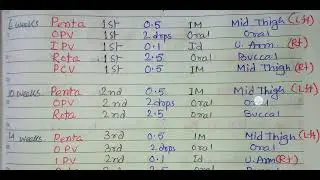 6 weeks Penta 1st 0.5 IM Mid Thigh (Lft)
OPV 1st 2 dops Oral Oral
IPV 1st 0.1 Id U. Arm (Rt)
Rota 1st 2.5 Oral Buccal
PCV 1st 0.5 IM Mid Thigh (Rt)
10 weeks Penta 2nd 0.5 IM Mid Thigh (Lft)
OPV 2nd 2 dops Oral Oral
Rota 2nd 2.5 Oral Buccal
Penta 3rd 0.5 IM Mid Thigh (Lft)
OPV 3rd 2 dops Oral Oral
IPV 2nd 0.1 Id U. Arm (Rt)